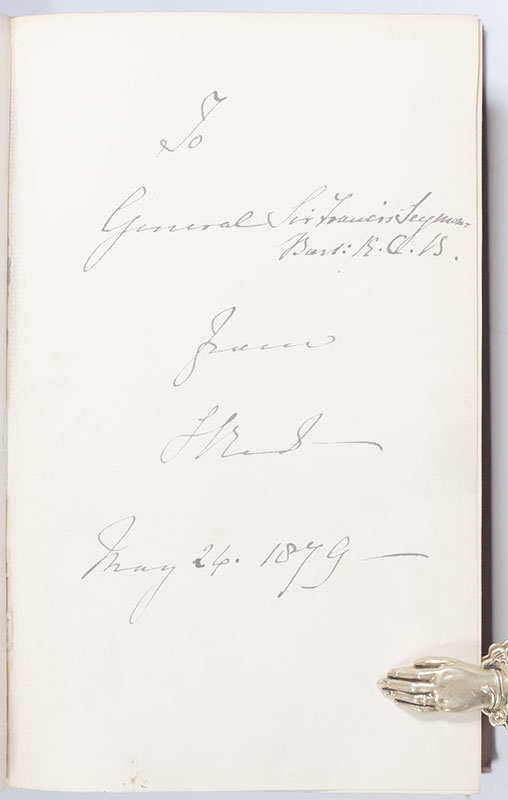 To
General Sir Francis Seymour
Bart: K.C.B.
from
May 24. 1879 —